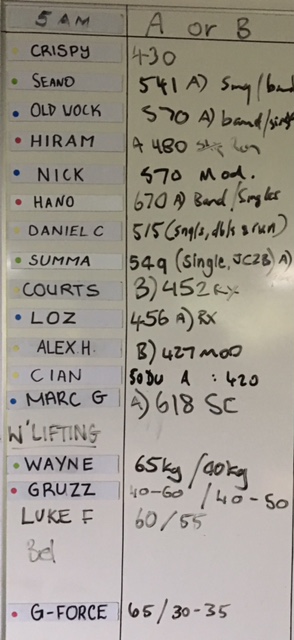 5 AM A or B
CRISPY 430
SEANO 541 A) Smg/band
OLD VOCK 570 A) band/singl
HIRAM A 480 Run
NICK 570 Mod.
HANO 670 A) Band/Singles
DANIEL C 515 (sngls, dbls & run)
SUMMA 549 (Single, JC2B) A)
COURTS B) 452 RX
LOZ 456 A) RX
ALEX H. B) 427 MOD
CIAN SODU A : 420
MARC G A) 618 SC
W'LIFTING
WAYNE 65kg/40kg
GRUZZ 40-60 / 40-50
LUKE F 60/55
Bel
G-FORCE 65/30-35